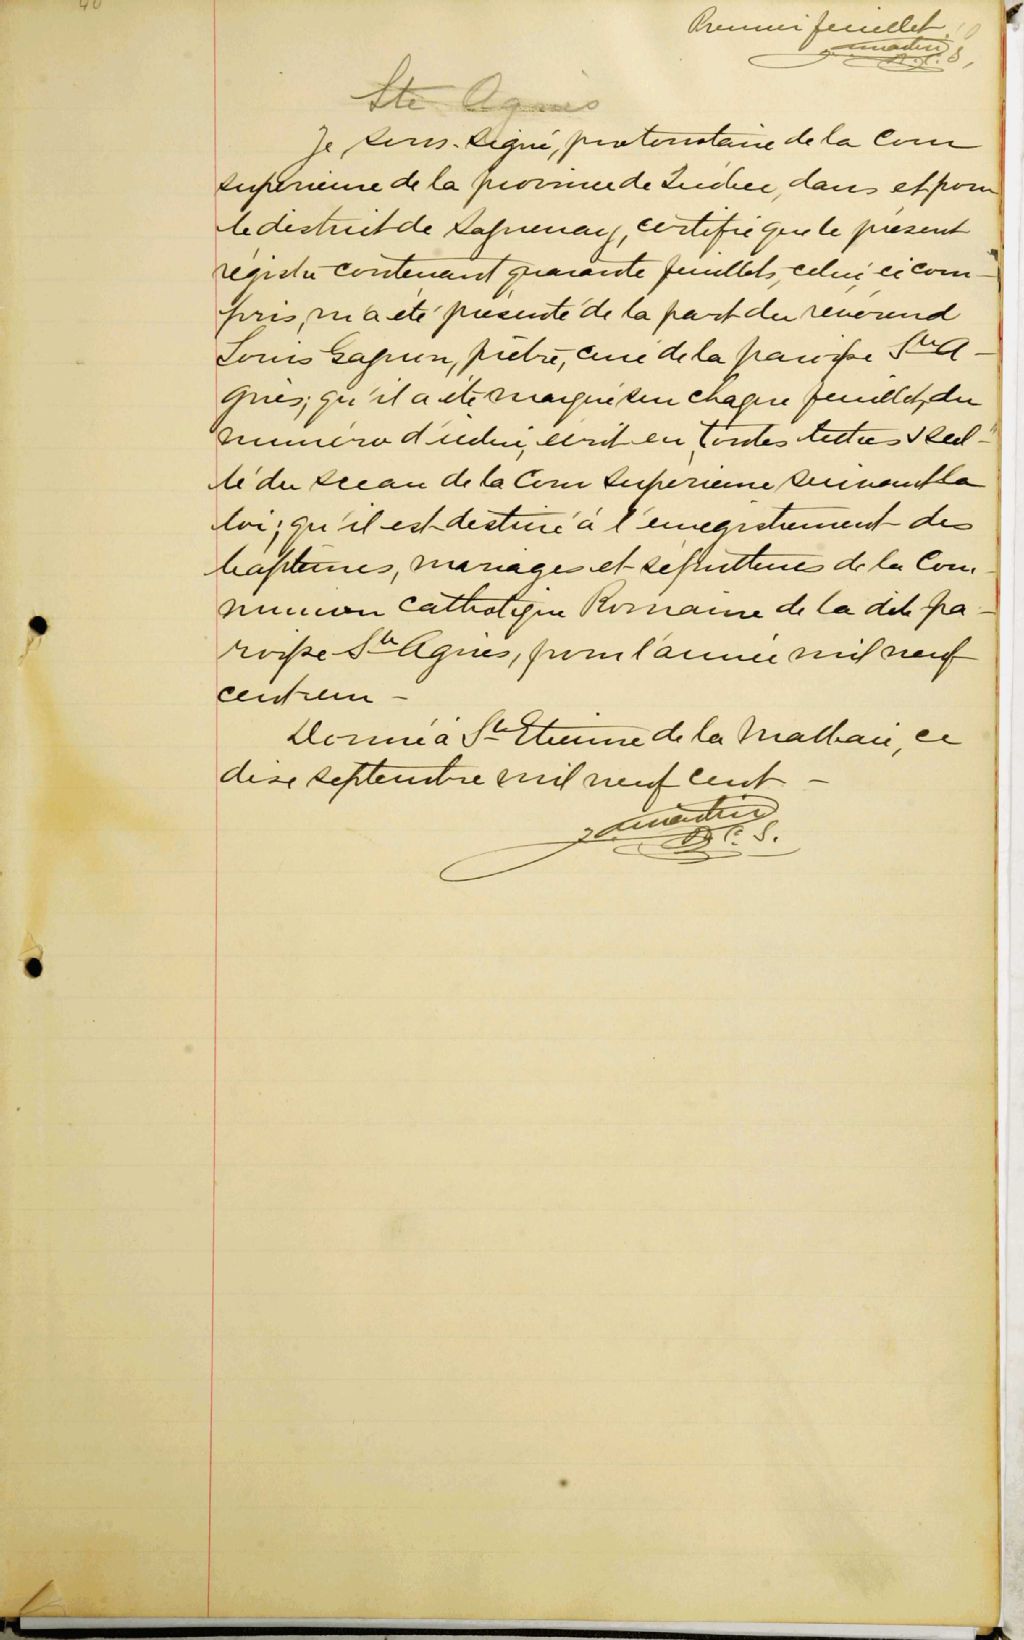 40
Premier feuillet
P. C. S.
Ste Agnès
Je, sous-signé, protonotaire de la Cour
supérieure de la province de Québec, dans et pour
le district de Saguenay, certifie que le présent
régistre contenant quarante feuillets, celui-ci com-
pris, m'a été présenté de la part du révérend
Louis Gagnon, prêtre, curé de la paroisse Ste A-
gnès; qu'il a été marqué sur chaque feuillet, du
numéro d'icelui, écrit en toutes lettres & scel-
lé du sceau de la Cour supérieure suivant la
loi; qu'il est destiné à l'enregistrement des
baptêmes, mariages et sépultures de la Com-
munion Catholique Romaine de la dite pa-
roisse Ste Agnès, pour l'année mil neuf
cent un –
Donné à St Etienne de la Malbaie, ce
dix septembre mil neuf cent –
P. C. S.